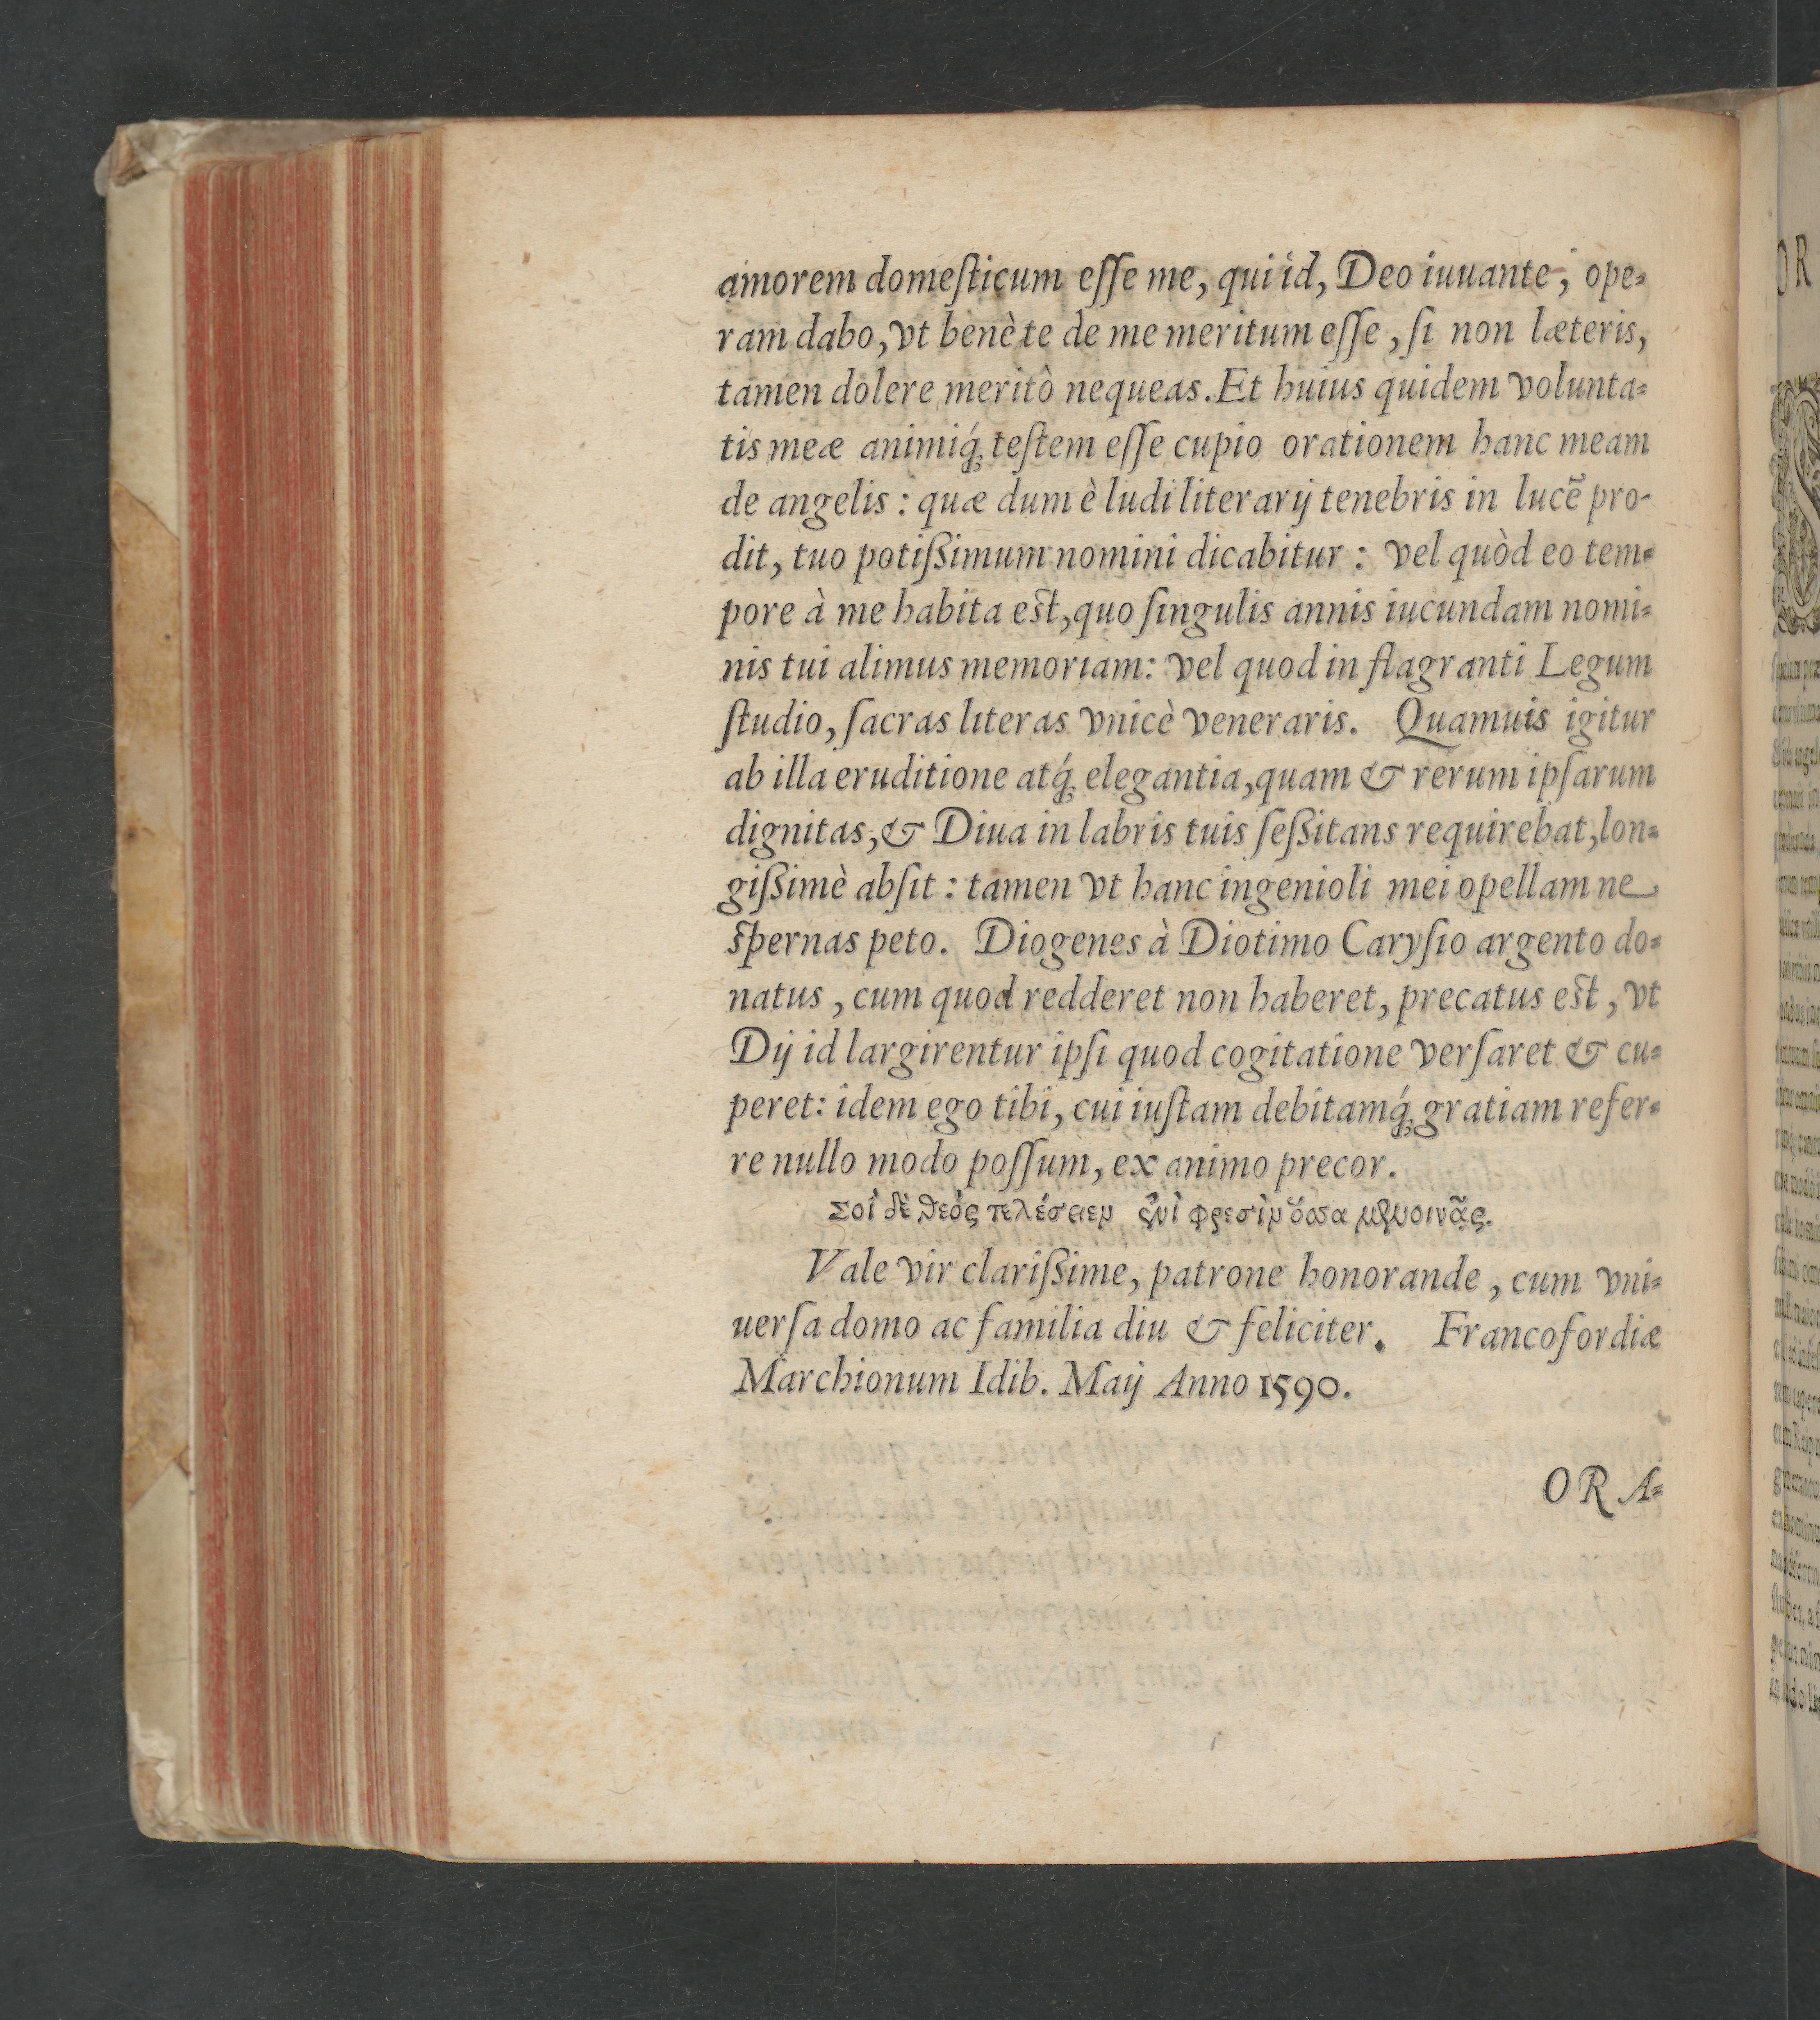 amorem domeſticum eſſe me, qui id, Deo iuuante, ope-
ram dabo, vt benè te de me meritum eſſe, ſi non læteris,
tamen dolere meritò nequeas. Et huius quidem volunta-
tis meæ animiq́; teſtem eſſe cupio orationem hanc meam
de angelis: quæ dum è ludi literarij tenebris in lucē pro-
dit, tuo potiſsimum nomini dicabitur: vel quòd eo tem-
pore à me habita eſt, quo ſingulis annis iucundam nomi-
nis tui alimus memoriam: vel quod in flagranti Legum
ſtudio, ſacras literas vnicè veneraris. Quamuis igitur
ab illa eruditione atq́; elegantia, quam & rerum ipſarum
dignitas, & Diua in labris tuis ſeſsitans requirebat, lon-
giſsimè abſit: tamen vt hanc ingenioli mei opellam ne
ſpernas peto. Diogenes à Diotimo Caryſio argento do-
natus, cum quod redderet non haberet, precatus eſt, vt
Dij id largirentur ipſi quod cogitatione verſaret & cu-
peret: idem ego tibi, cui iuſtam debitamq́; gratiam refer-
re nullo modo poſſum, ex animo precor.
Σοὶ δὲ θεὸς τελέσειεν ἐνὶ φρεσὶν ὅσσα μενοινᾷς.
Vale vir clariſsime, patrone honorande, cum vni-
uerſa domo ac familia diu & feliciter. Francofordiæ
Marchionum Idib. Maij Anno 1590.
ORA-